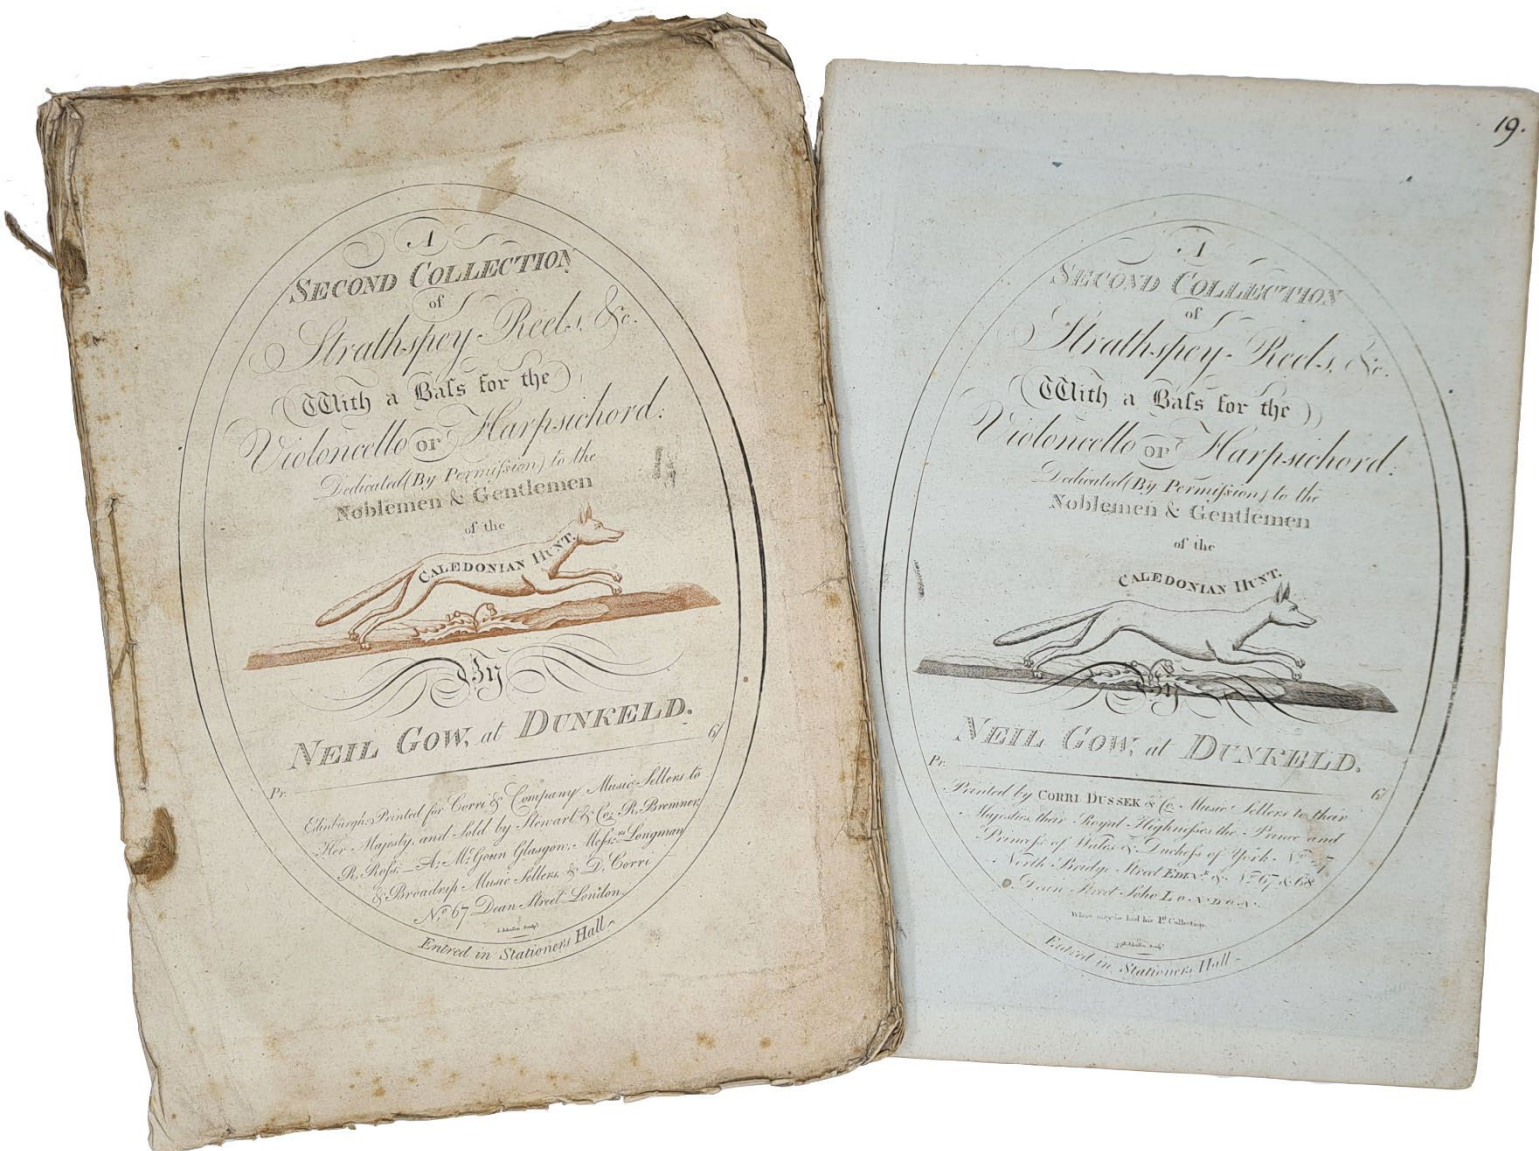 A
SECOND COLLECTION
of
Strathspey-Reels, &c.
With a Baſs for the
Violoncello or Harpsichord:
Dedicated (By Permiſsion) to the
Noblemen & Gentlemen
of the
CALEDONIAN HUNT.
By
NEIL GOW, at DUNKELD.
Pr. 6/
Edinburgh: Printed for Corri & Company Music Sellers to
Her Majesty, and Sold by Stewart & Co; R. Bremner,
R. Roſs,—A; McGoun Glasgow; Meſs:rs Longman
& Broadrip Music Sellers, & D. Corri
No. 67 Dean Street London
Entred in Stationers Hall
19.
A
SECOND COLLECTION
of
Strathspey-Reels, &c.
With a Baſs for the
Violoncello or Harpsichord:
Dedicated (By Permiſsion) to the
Noblemen & Gentlemen
of the
CALEDONIAN HUNT.
By
NEIL GOW, at DUNKELD.
Pr. 6/
Printed by CORRI DUSSEK & Co. Music Sellers to their
Majesties, their Royal Highneſses the Prince and
Princeſs of Wales & Ducheſs of York
North Bridge Street EDINr. & No. 67 & 68
Dean Street Soho LONDON.
Where may be had his 1st Collection.
Entred in Stationers Hall